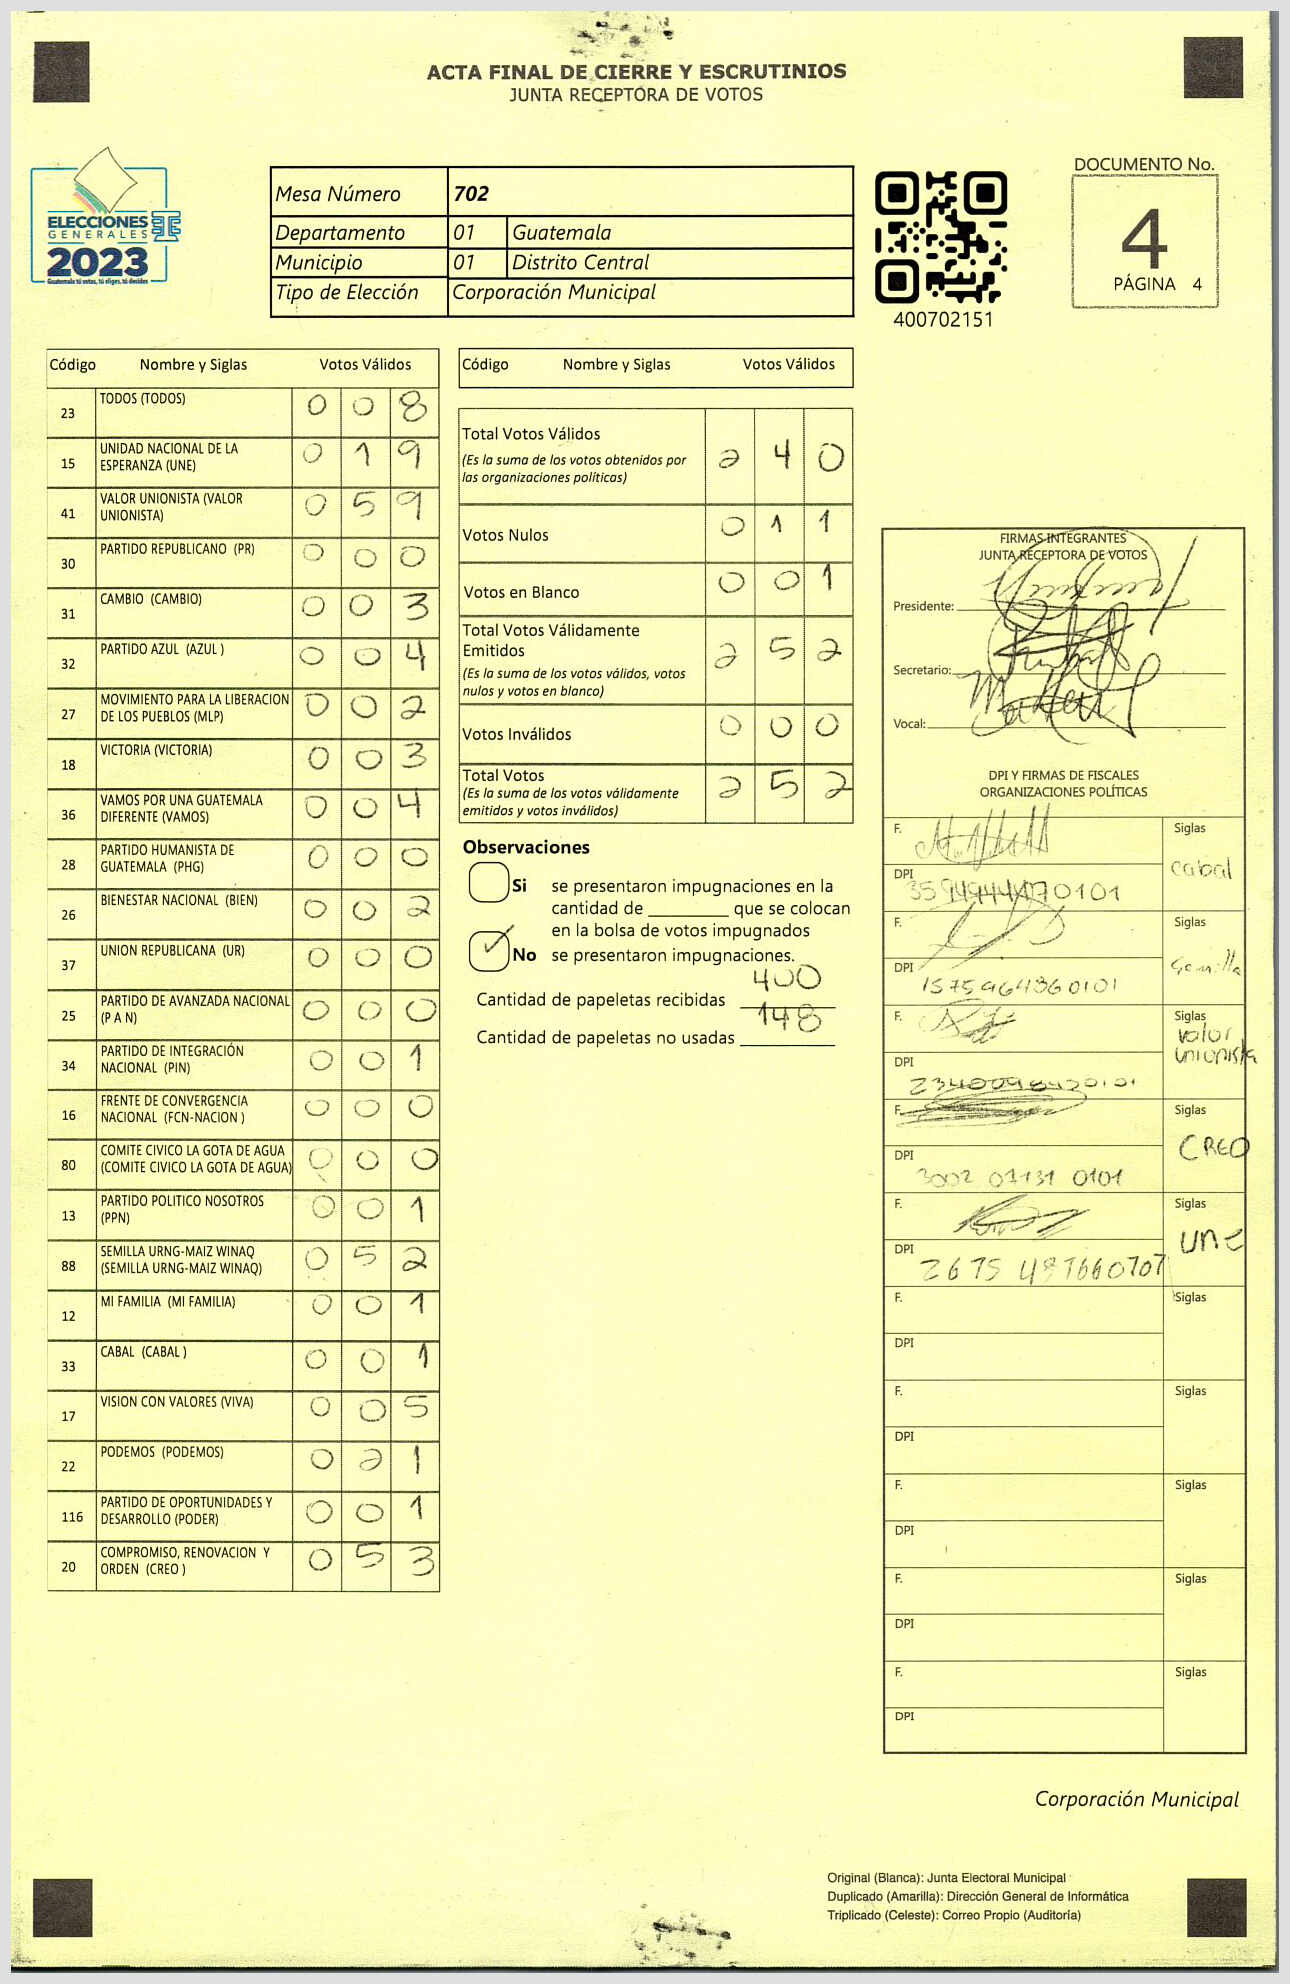 ACTA FINAL DE CIERRE Y ESCRUTINIOS
JUNTA RECEPTORA DE VOTOS
ELECCIONES
GENERALES
2023
Guatemala tú votas, tú eliges, tú decides
Mesa Número 702
Departamento 01 Guatemala
Municipio 01 Distrito Central
Tipo de Elección Corporación Municipal
400702151
DOCUMENTO No.
4
PÁGINA 4
Código Nombre y Siglas Votos Válidos
23 TODOS (TODOS) 0 0 8
15 UNIDAD NACIONAL DE LA
ESPERANZA (UNE) 0 1 9
41 VALOR UNIONISTA (VALOR
UNIONISTA) 0 5 9
30 PARTIDO REPUBLICANO (PR) 0 0 0
31 CAMBIO (CAMBIO) 0 0 3
32 PARTIDO AZUL (AZUL ) 0 0 4
27 MOVIMIENTO PARA LA LIBERACION
DE LOS PUEBLOS (MLP) 0 0 2
18 VICTORIA (VICTORIA) 0 0 3
36 VAMOS POR UNA GUATEMALA
DIFERENTE (VAMOS) 0 0 4
28 PARTIDO HUMANISTA DE
GUATEMALA (PHG) 0 0 0
26 BIENESTAR NACIONAL (BIEN) 0 0 2
37 UNION REPUBLICANA (UR) 0 0 0
25 PARTIDO DE AVANZADA NACIONAL
(P A N) 0 0 0
34 PARTIDO DE INTEGRACIÓN
NACIONAL (PIN) 0 0 1
16 FRENTE DE CONVERGENCIA
NACIONAL (FCN-NACION ) 0 0 0
80 COMITE CIVICO LA GOTA DE AGUA
(COMITE CIVICO LA GOTA DE AGUA) 0 0 0
13 PARTIDO POLITICO NOSOTROS
(PPN) 0 0 1
88 SEMILLA URNG-MAIZ WINAQ
(SEMILLA URNG-MAIZ WINAQ) 0 5 2
12 MI FAMILIA (MI FAMILIA) 0 0 1
33 CABAL (CABAL ) 0 0 1
17 VISION CON VALORES (VIVA) 0 0 5
22 PODEMOS (PODEMOS) 0 2 1
116 PARTIDO DE OPORTUNIDADES Y
DESARROLLO (PODER) 0 0 1
20 COMPROMISO, RENOVACION Y
ORDEN (CREO ) 0 5 3
Código Nombre y Siglas Votos Válidos
Total Votos Válidos 2 4 0
(Es la suma de los votos obtenidos por
las organizaciones políticas)
Votos Nulos 0 1 1
Votos en Blanco 0 0 1
Total Votos Válidamente
Emitidos 2 5 2
(Es la suma de los votos válidos, votos
nulos y votos en blanco)
Votos Inválidos 0 0 0
Total Votos 2 5 2
(Es la suma de los votos válidamente
emitidos y votos inválidos)
Observaciones
Si se presentaron impugnaciones en la
cantidad de ________ que se colocan
en la bolsa de votos impugnados
No se presentaron impugnaciones.
Cantidad de papeletas recibidas 400
Cantidad de papeletas no usadas 148
FIRMAS INTEGRANTES
JUNTA RECEPTORA DE VOTOS
Presidente:
Secretario:
Vocal:
DPI Y FIRMAS DE FISCALES
ORGANIZACIONES POLÍTICAS
F. Siglas
cabal
DPI
F. Siglas
Semilla
DPI 1575964360101
F. Siglas
valor
unionista
DPI
F. Siglas
CREO
DPI 3002 07131 0101
F. Siglas
une
DPI
F. Siglas
DPI
F. Siglas
DPI
F. Siglas
DPI
F. Siglas
DPI
F. Siglas
DPI
Corporación Municipal
Original (Blanca): Junta Electoral Municipal
Duplicado (Amarilla): Dirección General de Informática
Triplicado (Celeste): Correo Propio (Auditoría)